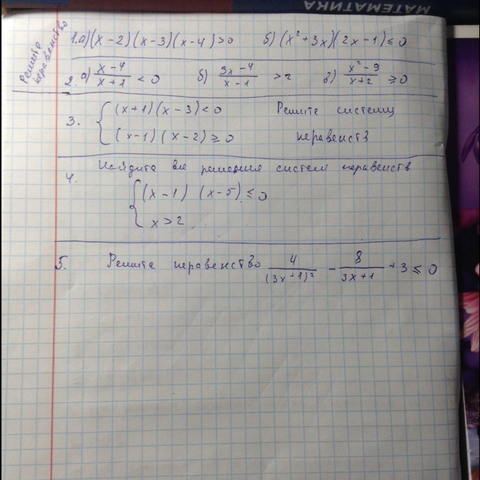 МАТЕМАТИКА
Решите неравенство
1. а) (x-2)(x-3)(x-4)>0 б) (x²+3x)(2x-1)≤0
2. а) (x-4)/(x+1) <0 б) (3x-4)/(x-1) >2 в) (x²-9)/(x+2) ≥0
3. { (x+1)(x-3)<0 Решите систему
(x-1)(x-2)≥0 неравенств
4. Найдите все решения систем неравенств
{ (x-1) (x-5)≤0
x>2
5. Решите неравенство 4/(3x+1)² - 8/(3x+1) +3≤0